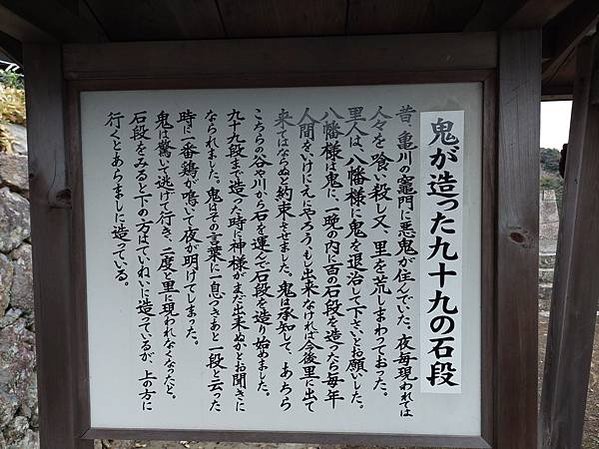 鬼が造った九十九の石段
昔、亀川の竈門に悪鬼が住んでいた、夜毎現われては
人々を喰い殺し又、里を荒しまわっておった。
里人は、八幡様に鬼を退治して下さいとお願いした。
八幡様は鬼に、一晩の内に百の石段を造ったら毎年
人間をいけにえにやろう、もし出来なければ今後里に出て
来てはならぬと約束させました。鬼は承知して、あちら
こちらの谷や川から石を運んで石段を造り始めました。
九十九段まで造った時に神様がまだ出来ぬかとお聞きに
なられました。鬼はその言葉に一息つきあと一段と云った
時に一番鶏が鳴いて夜が明けてしまった。
鬼は驚いて逃げて行き、二度と里に現われなくなったと。
石段をみると下の方はていねいに造っているが、上の方に
行くとあらましに造っている。